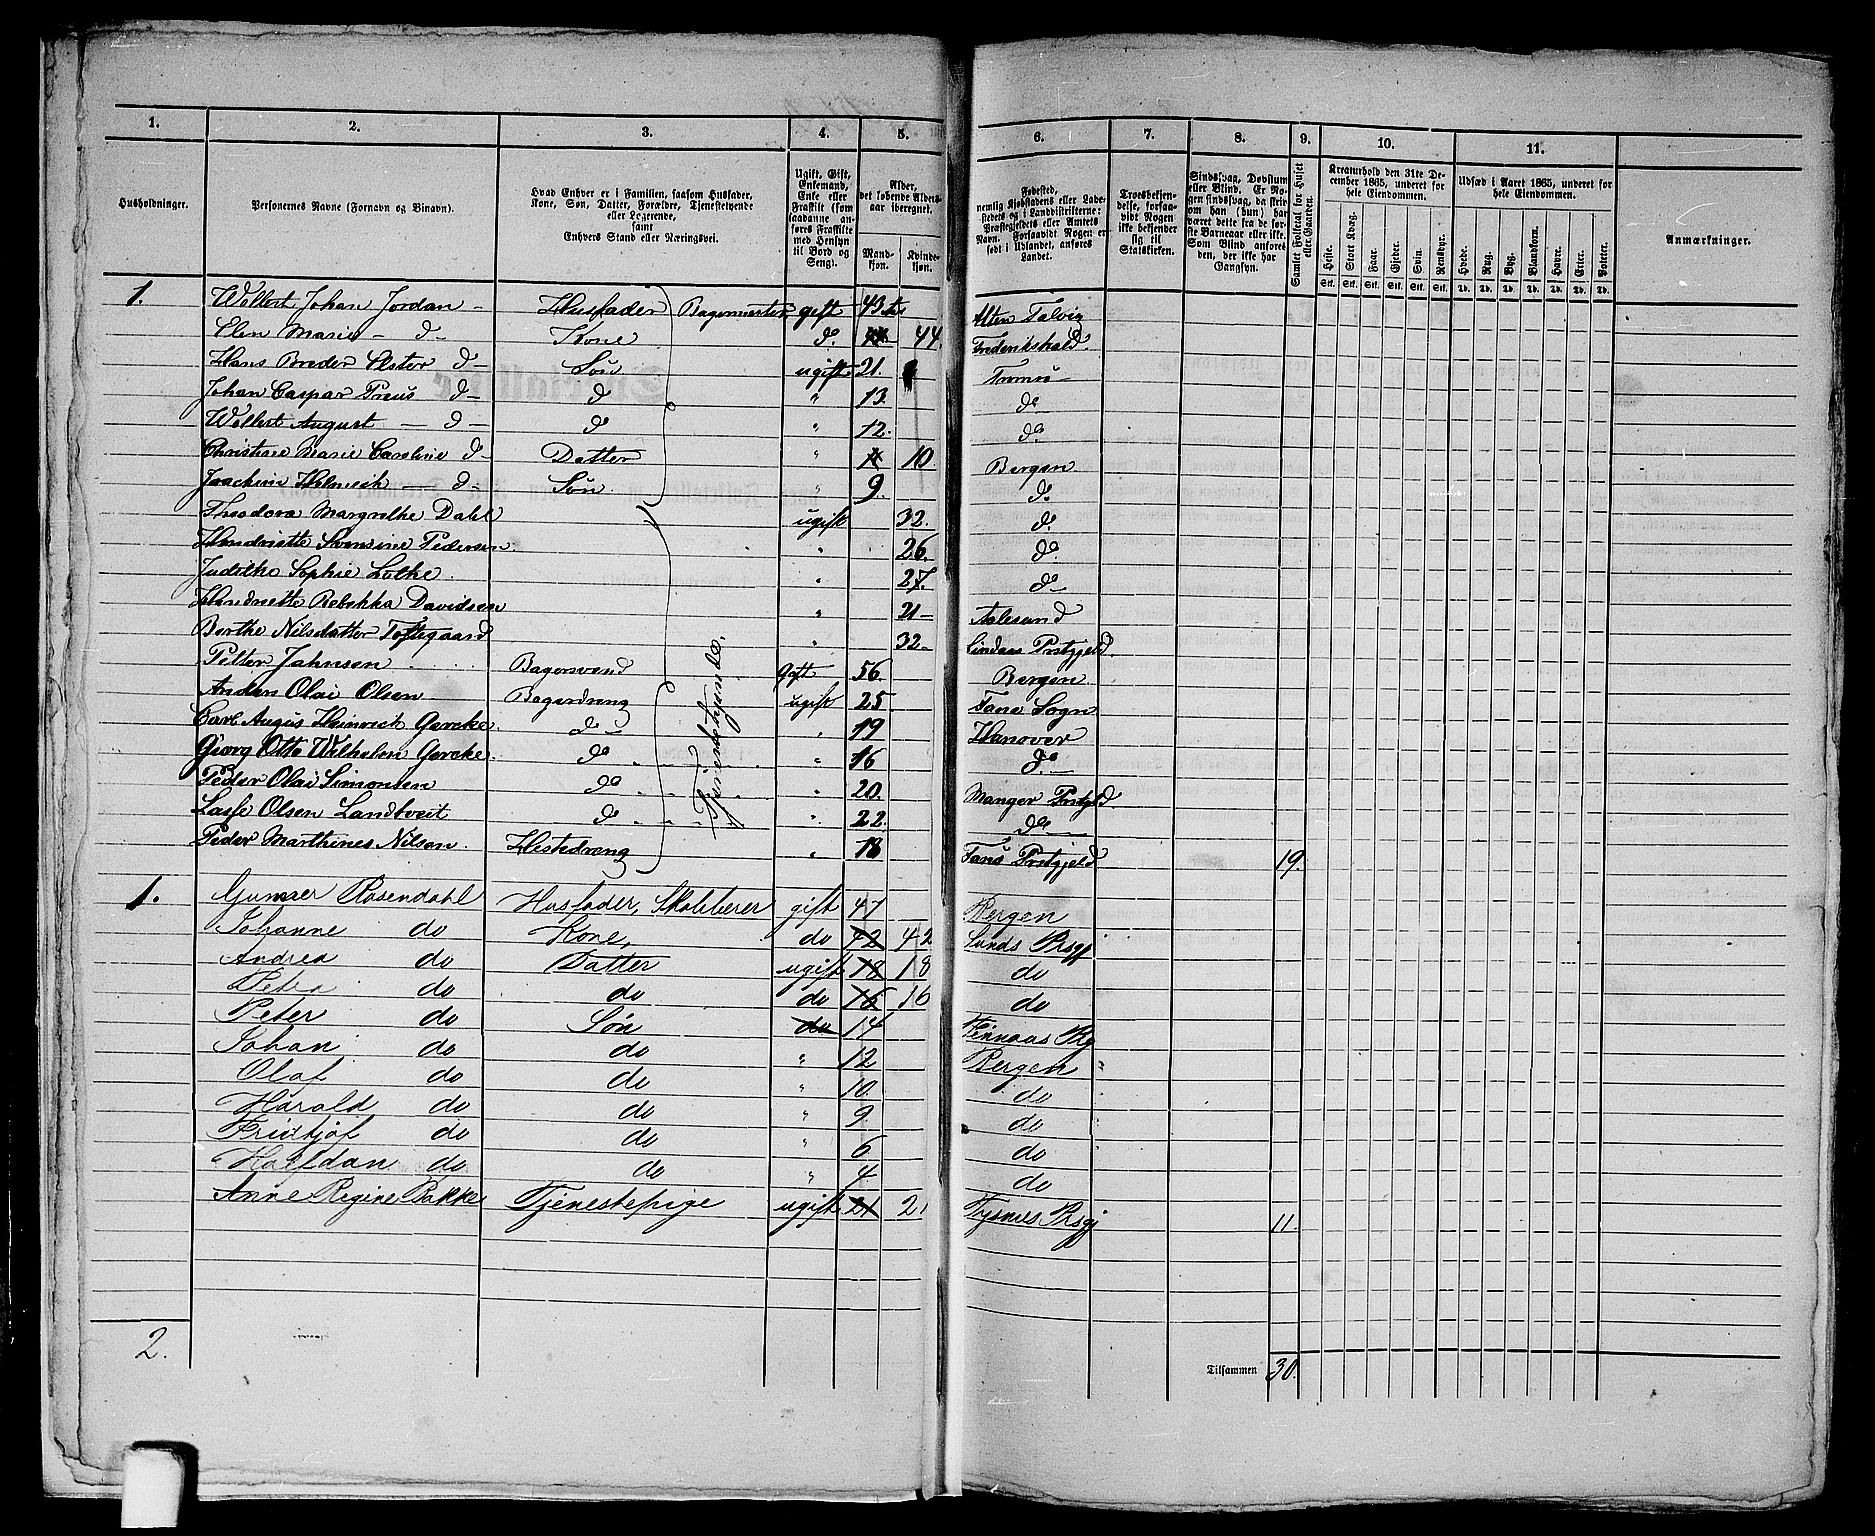 1. 2. 3. 4. 5. 6. 7. 8. 9. 10. 11.
Husholdninger.
Personernes Navne (Fornavn og Binavn).
Hvad Enhver er i Familien, saasom Husfader,
Kone, Søn, Datter, Forældre, Tjenestetyende
eller Logerende,
samt
Enhvers Stand eller Næringsvei.
Ugift, Gift,
Enkemand,
Enke eller
Fraskilt (som
saadanne an-
føres Fraskilte
med Hensyn
til Bord og
Seng).
Alder,
det løbende Alders-
aar iberegnet.
Mand-
kjøn.
Kvinde-
kjøn.
Fødested,
nemlig Kjøbstadens eller Lade-
stedets og i Landdistrikterne:
Præstegjeldets eller Amtets
Navn. Forsaavidt Nogen er
født i Udlandet, anføres
Landet.
Troesbekjen-
delse, forsaa-
vidt Nogen
ikke bekjender
sig til
Statskirken.
Sindssvag, Døvstum
eller Blind. Er No-
gen sindssvag, da skriv
om han (hun) har
været dette fra de før-
ste Barneaar eller ikke.
Som Blind anføres
den, der ikke har
Gangsyn.
Samlet Folketal for Huset
eller Gaarden.
Kreaturhold den 31te De-
cember 1865, underet for
hele Eiendommen.
Heste. Stort Kvæg. Faar. Gjeder. Svin. Rensdyr.
Stk. Stk. Stk. Stk. Stk. Stk.
Udsæd i Aaret 1865, underet for
hele Eiendommen.
Hvede. Rug. Byg. Blandkorn. Havre. Erter. Poteter.
Td. Td. Td. Td. Td. Td. Td.
Anmærkninger.
1. Wollert Johan Jordan – Husfader Bagermester gift 43 Alten Talvig
Elen Marie – d – Kone do. 44. Frederikshald
Hans Breder Elster d – Søn ugift 21. Tromsø –
Johan Caspar Preus d – d " 13. do
Wollert August – d – d " 12. do
Christine Marie Caroline d – Datter " 10 Bergen
Joachim Helmich – d – Søn. " 9. do.
Theodora Margrethe Dahl ugift 32. do.
Hendriette Severine Pedersen. " 26. do.
Judithe Sophie Lothe. " 27. do –
Hendriette Rebekka Davidsen " 21 – Aalesund
Berthe Nilsdatter Toftegaard " 32 – Lindaas Prstgjeld
Petter Jahnsen Bagersvend Gift 56. Bergen.
Anders Olai Olsen Bagerdreng ugift 25 Fane Sogn
Carl Augus Heinrich Gercke. do – " 19 Hanover
Georg Otto Wilhelm Gercke. do " 16 do. –
Peder Olai Simonsen do " 20. Manger Prstgjld.
Lasse Olsen Landtveit do " 22. do –
Peder Marthines Nilsen. Hestedreng " 18 Fans Prstgjeld 19.
Tjenestetyende.
1. Gunner Rosendahl Husfader, Skobberer gift 47 Bergen
Johanne do Kone, do 42 42 Sunds Prsgj
Andrea do Datter ugift 18 18 do
Petra do do do 16 16 do
Peter do Søn do 14 Finnaas Prg
Johan do do " 12 Bergen
Olaf do do " 10. do
Harald do do " 9. do
Fridtjof do do " 6 do
Halfdan do do " 4 do
Anne Regine Bakke Tjenestepige ugift 21 21 Tysnes Prsgj 11
2.
Tilsammen 30.